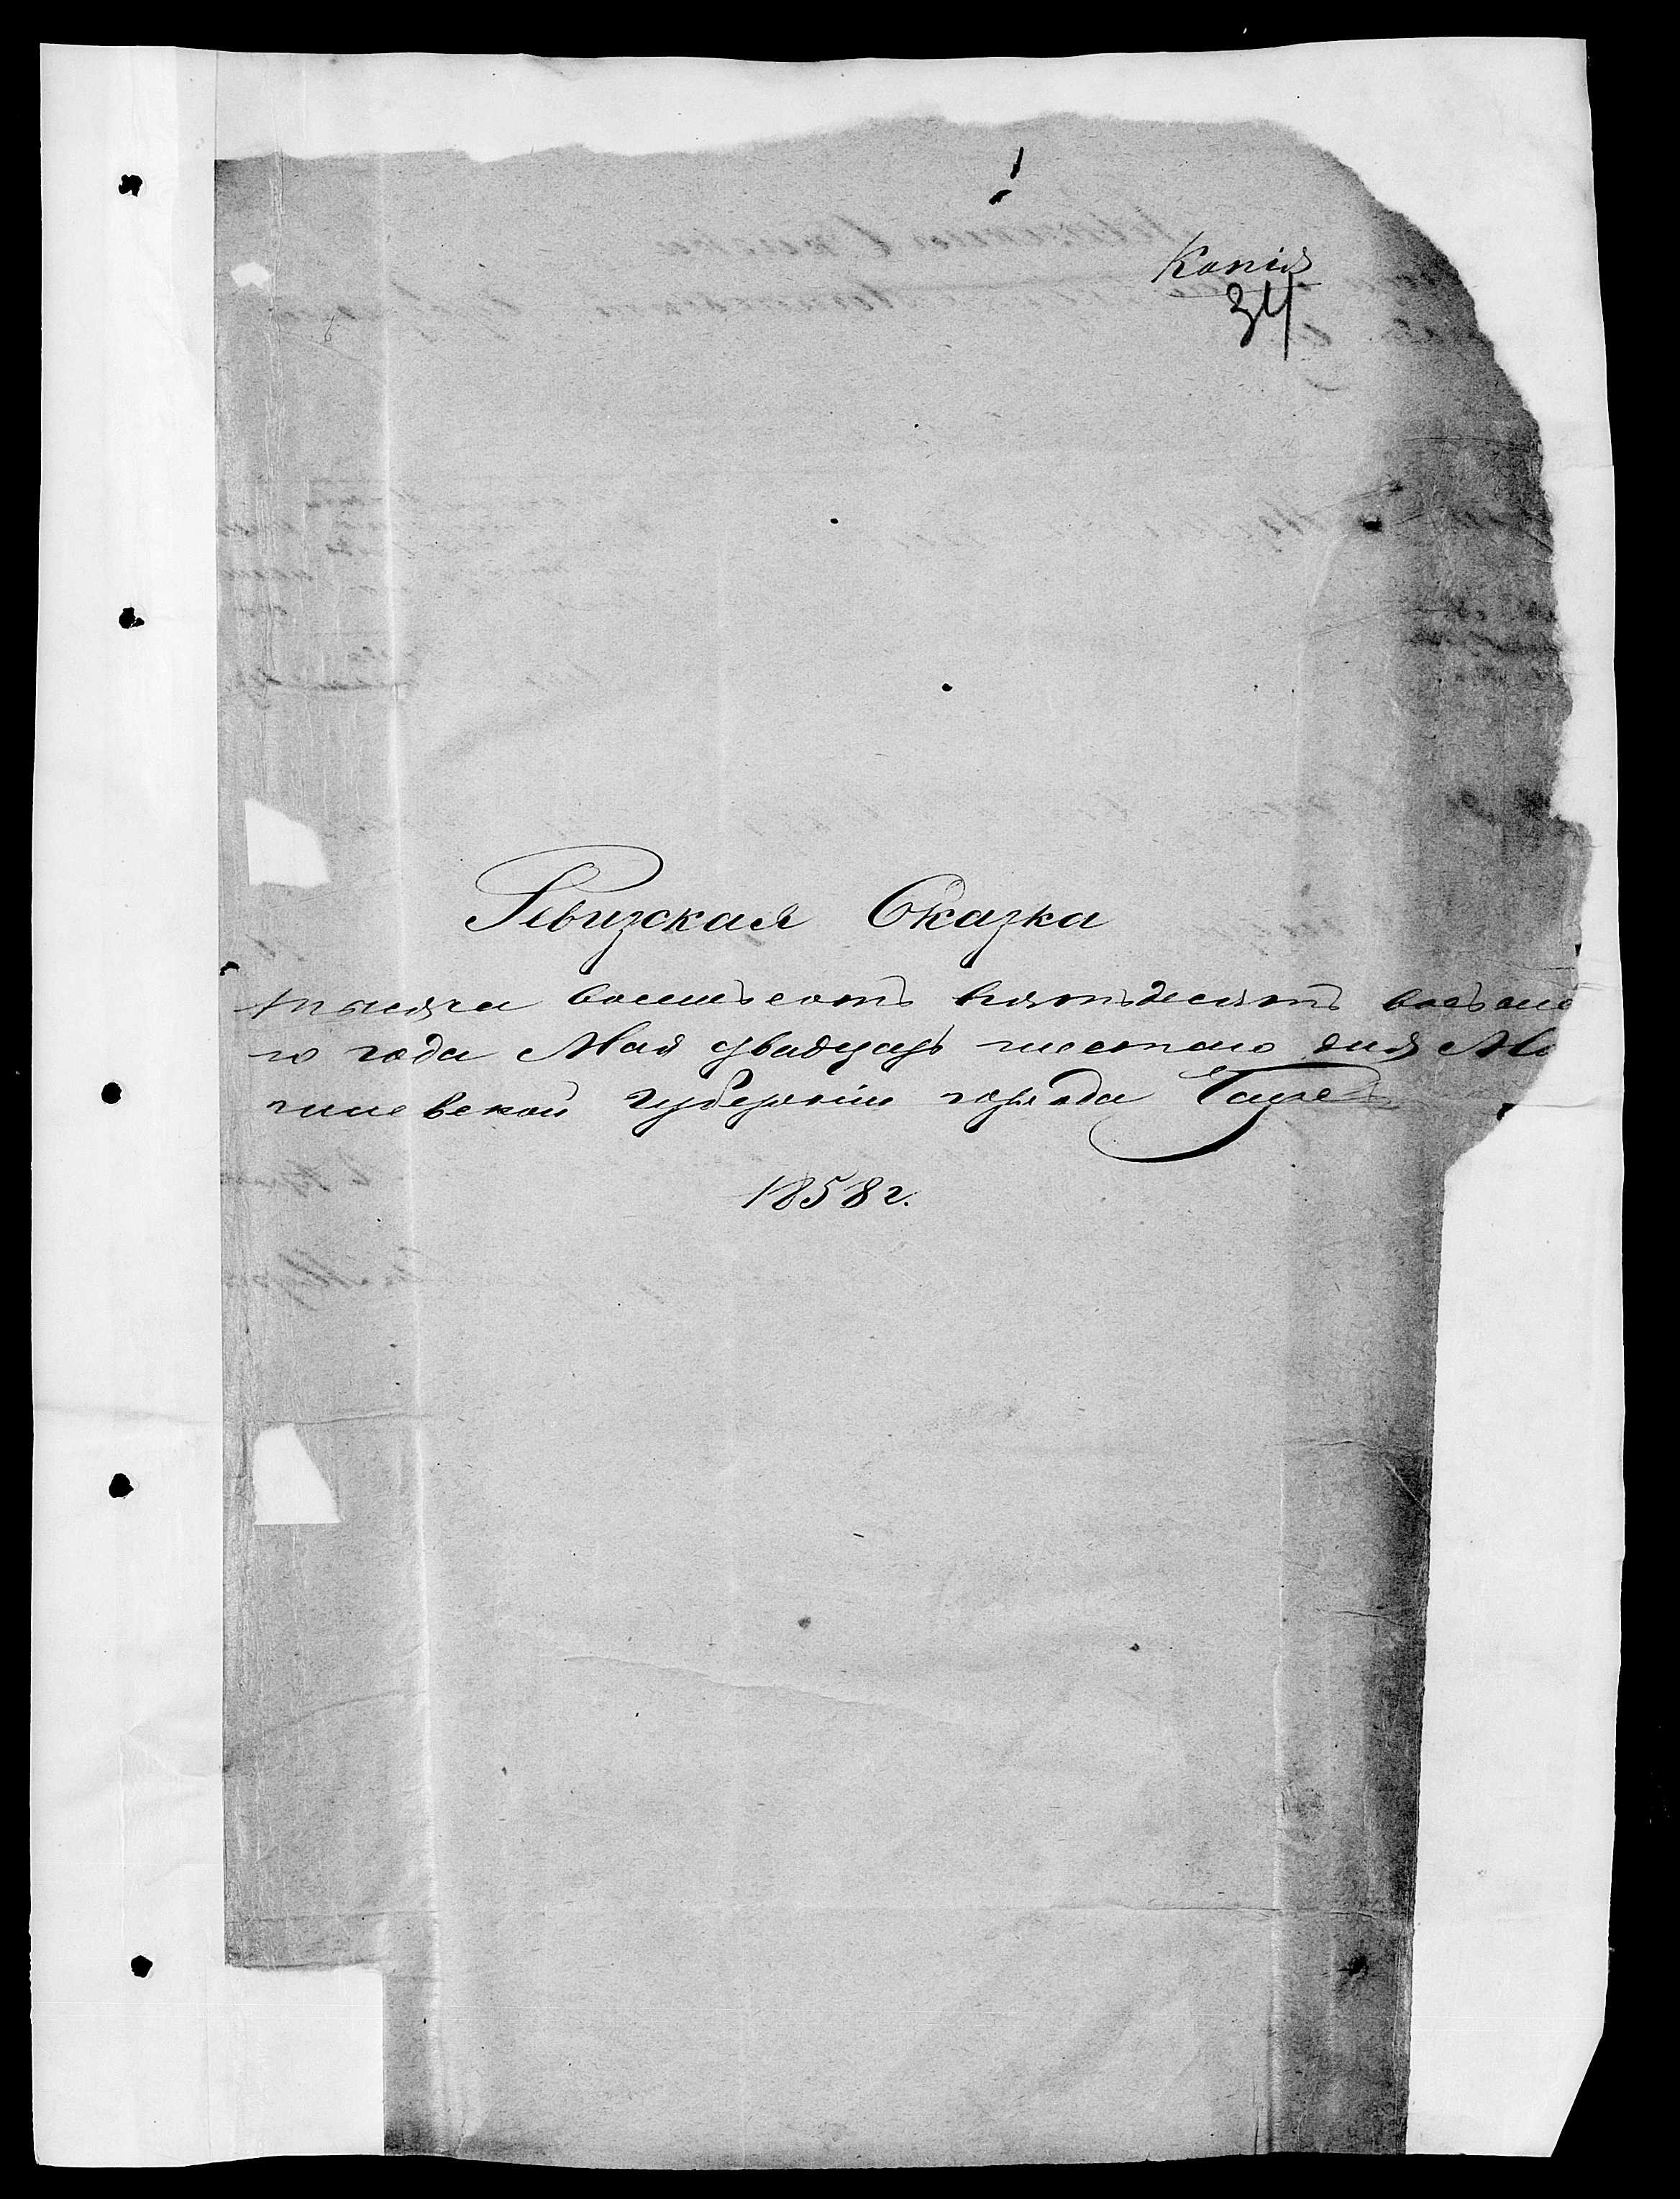 Копія
34
Ревизская Сказка
тысяча восемьсотъ пятьдесятъ восьма
го года Мая двадцать шестаго дня Мо
гилевской губерніи города
1858 г.